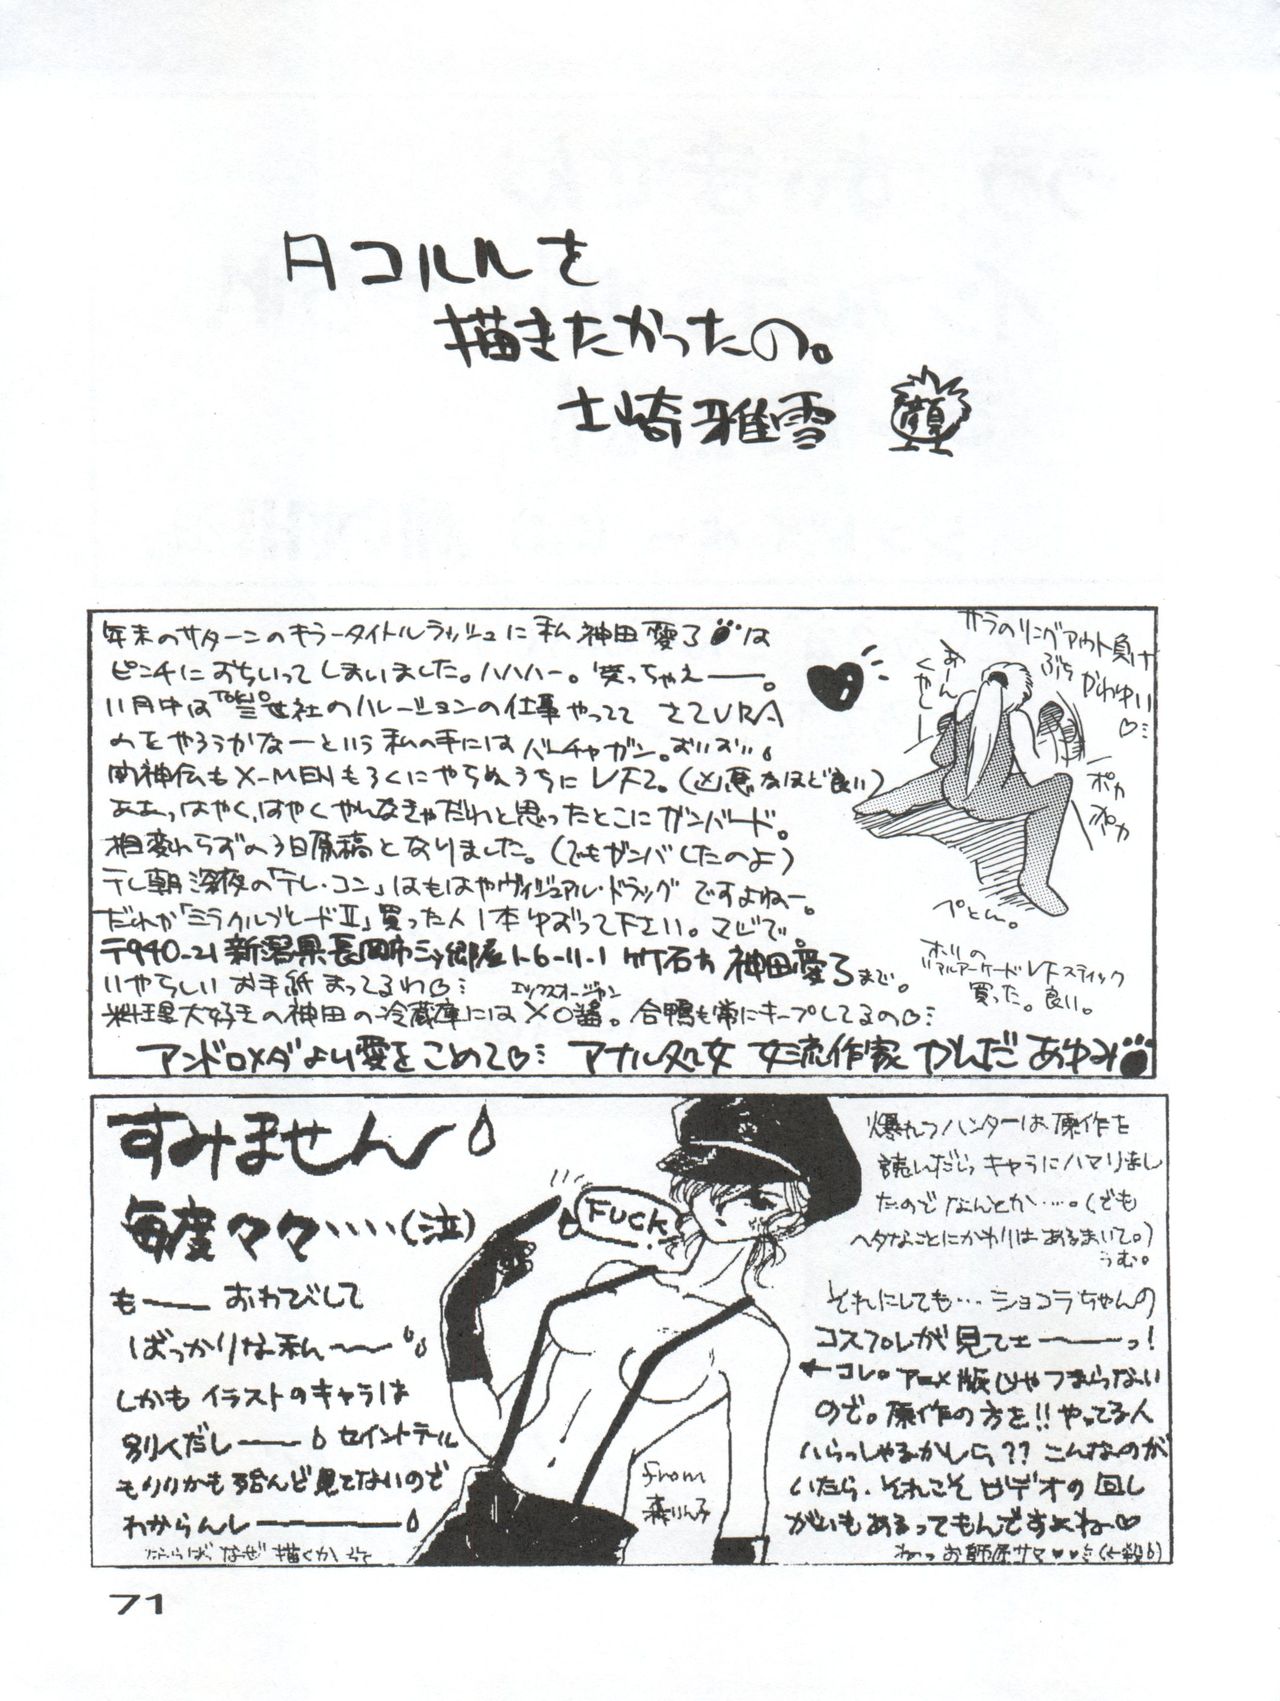 タコルルを
描きたかったの。
士崎雅雪
顔
年末のサターンのキラータイトルラッシュに私 神田愛了は
ピンチにおちいってしまいました。ハハハー。笑っちゃえ――。
11月中は TOKYO三世社のハレーションの仕事やってて さてURA
のをやろうかなーという私の手にはバーチャガン。
闘神伝もX-MENもろくにやらぬうちにVF2。(凶悪なほど良い)
ああっはやく、はやくやんなきゃだわと思ったとこにガンバード。
相変わらずの3日原稿となりました。(でもガンバしたのよ)
テレ朝深夜の「テレ・コン」はもはやヴィジュアル・ドラッグですよねー。
だれか「ミラクルブレードⅡ」買った人1本ゆずって下さい。マジで。
〒940-21 新潟県長岡市三ッ郷屋1-6-11-1 竹石方 神田愛了まで。
いやらしいお手紙まってるわ♡
エックスオージャン
料理大好きの神田の冷蔵庫にはXO醤。合鴨も常にキープしてるの♡
アンドロメダより愛をこめて♡ アナル処女 女流作家 かんだあゆみ
サラのリングアウト負け
ぶち かわゆい♡
あーん
くやしー
ポカ
ポカ
ぺとん。
ホリの
リアルアーケードVFスティック
買った。良い。
すみません〜
毎度々々‥‥(泣)
も―― おわびして
ばっかりな私〜〜
しかもイラストのキャラは
別人だし―― セイントテール
もりりかも殆んど見てないので
わからんし――――
ならばなぜ描くか
FUCK!
from
森りん子
爆れつハンターは、原作を
読んだらキャラにハマりまし
たのでなんとか‥‥。(でも
ヘタなことにかわりはあるまいて。)
うむ。
それにしても…ショコラちゃんの
コスプレが見てェ――――っ!
←コレ。アニメ版じゃつまらない
ので。原作の方を!!やってる人
いらっしゃるかしら??こんなのが
いたら、それこそビデオの回し
がいもあるってもんですよね♡
ねっお師原サマ♥♥